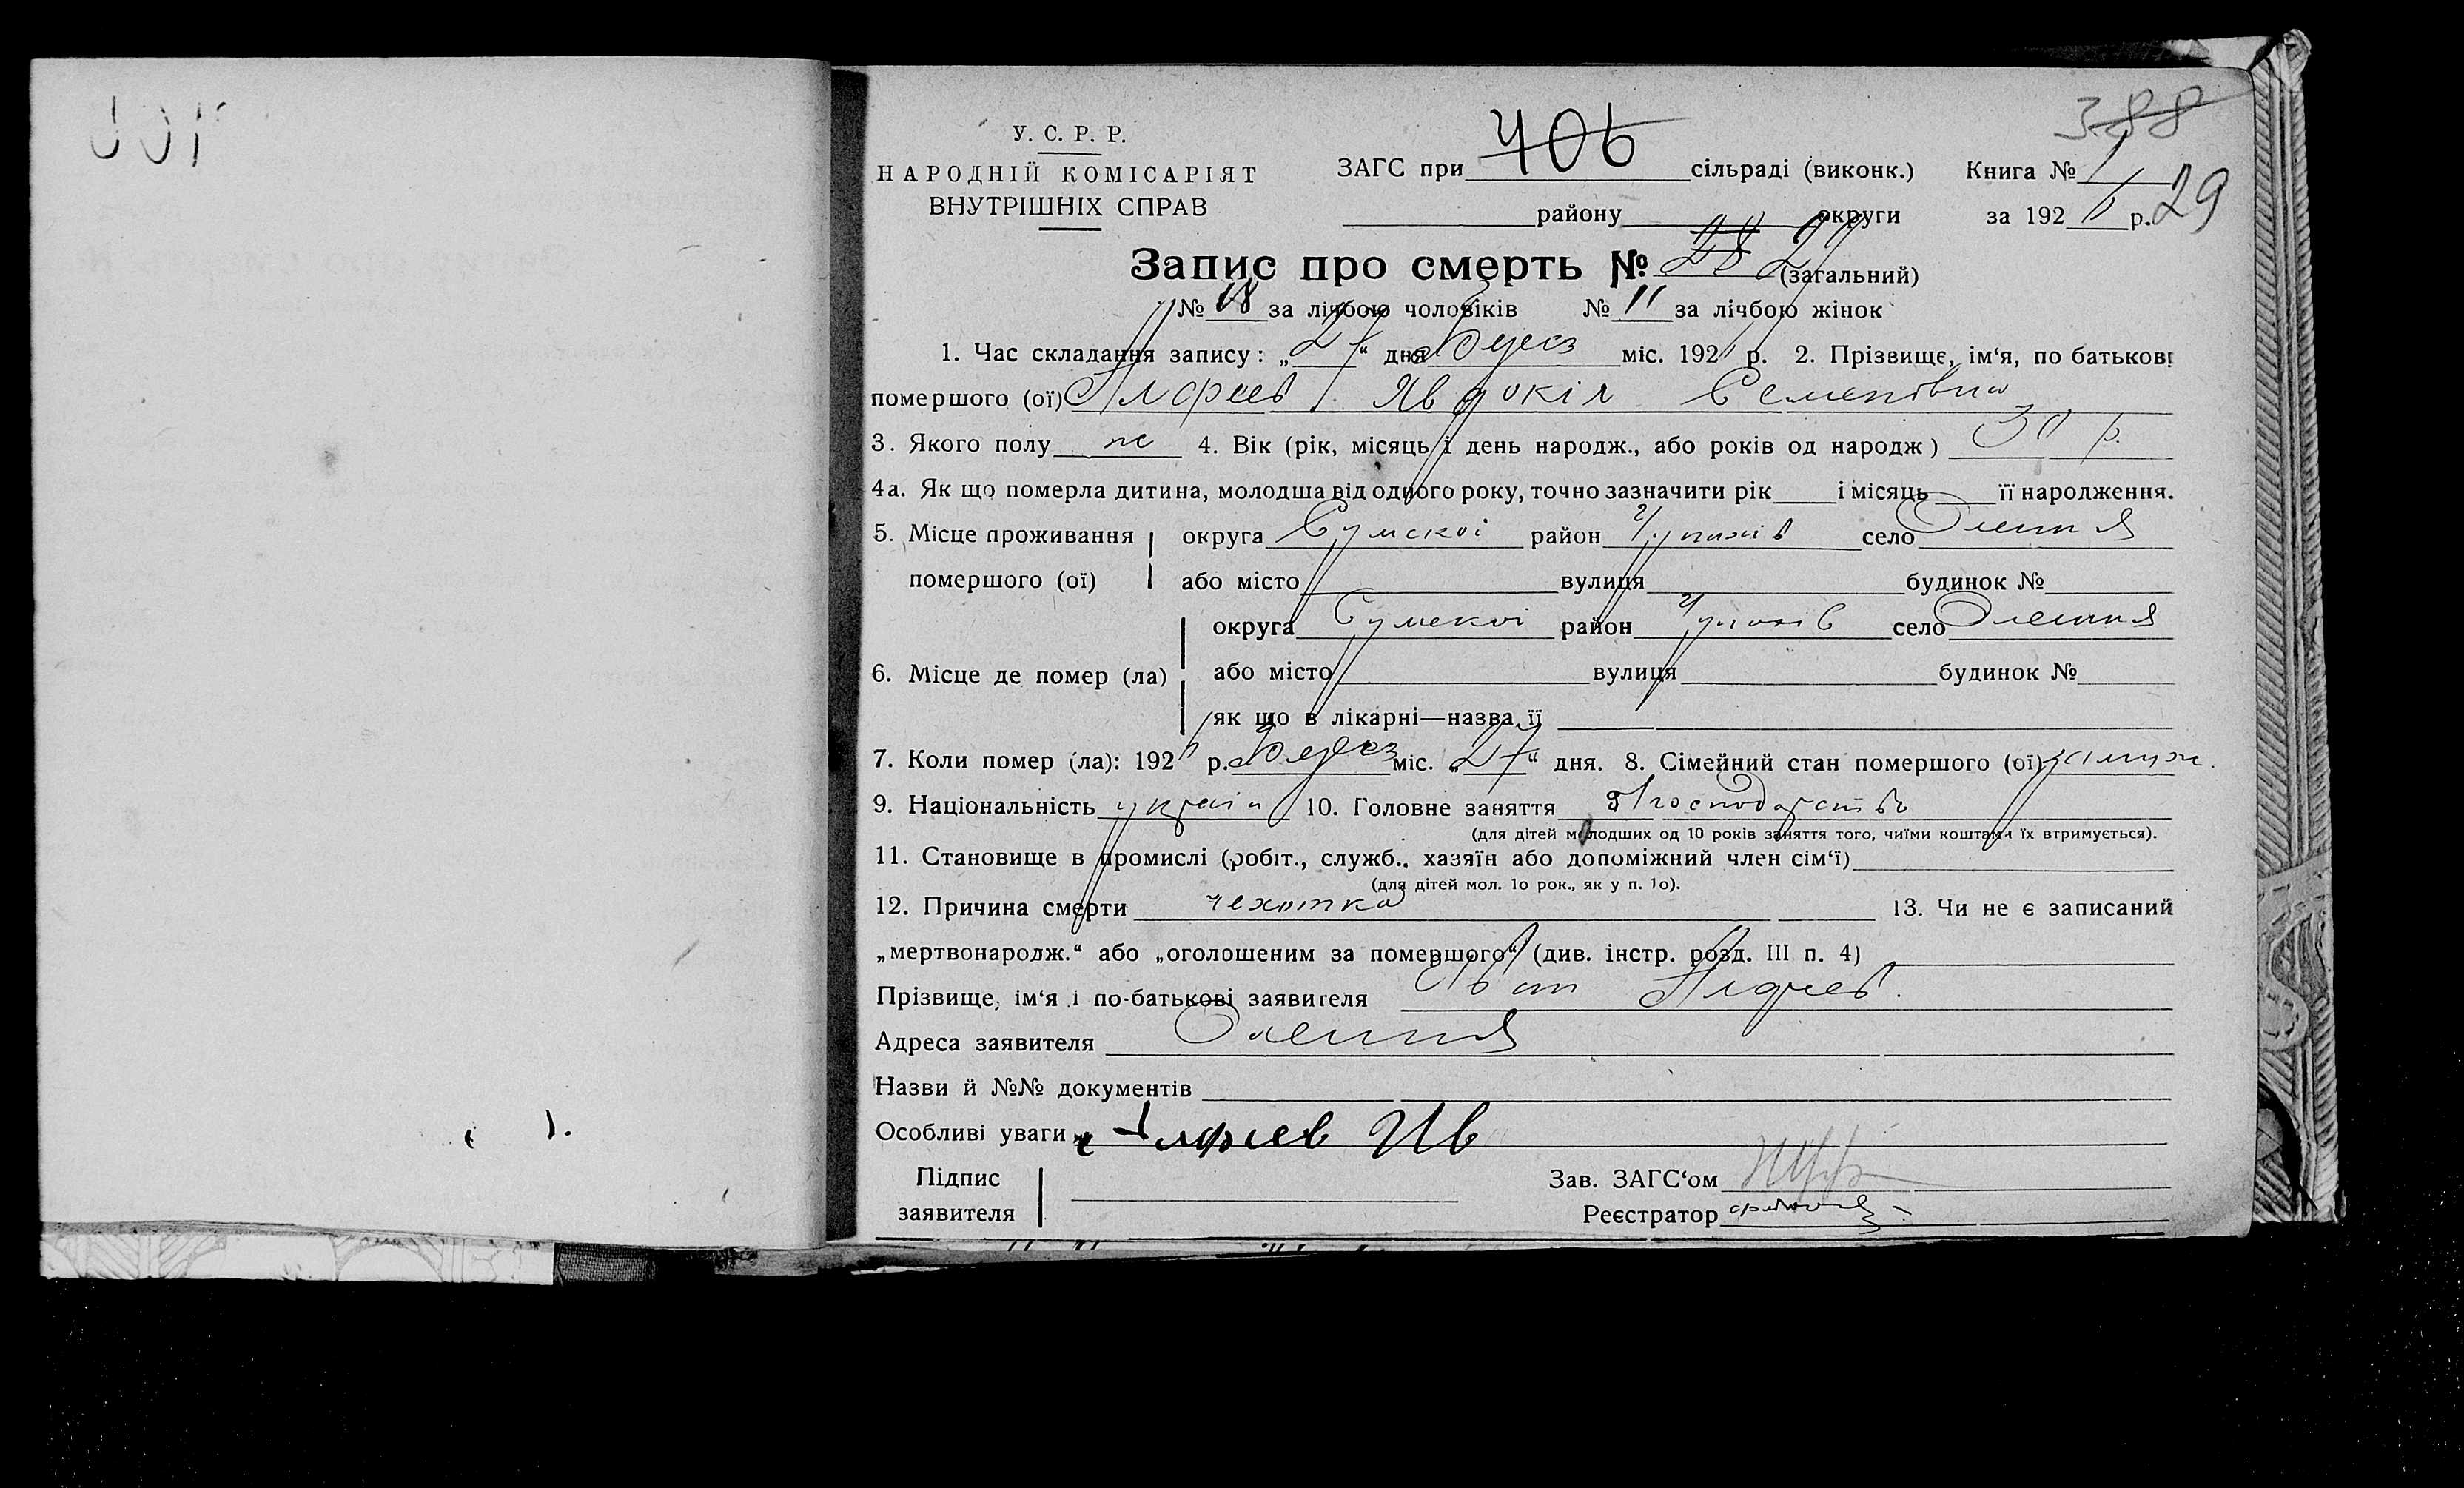 388
У. С. Р. Р.
НАРОДНІЙ КОМІСАРІЯТ
ВНУТРІШНІХ СПРАВ
ЗАГС при 406 сільраді (виконк.) Книга № 1
району округи за 192 р. 29
Запис про смерть № 28 29 (загальний)
№ 18 за лічбою чоловіків № 11 за лічбою жінок
1. Час складання запису: „27“ дня міс. 192 р. 2. Прізвище, ім‘я, по батькові
помершого (ої) Алфеєв Явдокія Семенівна
3. Якого полу ж 4. Вік (рік, місяць і день народж., або років од народж) 30 р.
4а. Як що померла дитина, молодша від одного року, точно зазначити рік і місяць її народження.
5. Місце проживання помершого (ої) округа Сумскоі район село
або місто вулиця будинок №
6. Місце де помер (ла) округа Сумскоі район село
або місто вулиця будинок №
як що в лікарні—назва її
7. Коли помер (ла): 192 р. міс. „27“ дня. 8. Сімейний стан помершого (ої) замуж.
9. Національність україн 10. Головне заняття господарство
(для дітей молодших од 10 років заняття того, чиїми коштами їх втримується).
11. Становище в промислі (робіт., служб., хазяїн або допоміжний член сім‘ї)
(для дітей мол. 1о рок., як у п. 1о).
12. Причина смерти чехотка 13. Чи не є записаний
„мертвонародж.“ або „оголошеним за помершого“ (див. інстр. розд. III п. 4)
Прізвище, ім‘я і по-батькові заявителя Алфеев.
Адреса заявителя
Назви й №№ документів
Особливі уваги Алфеев Ив
Підпис заявителя
Зав. ЗАГС‘ом
Реєстратор